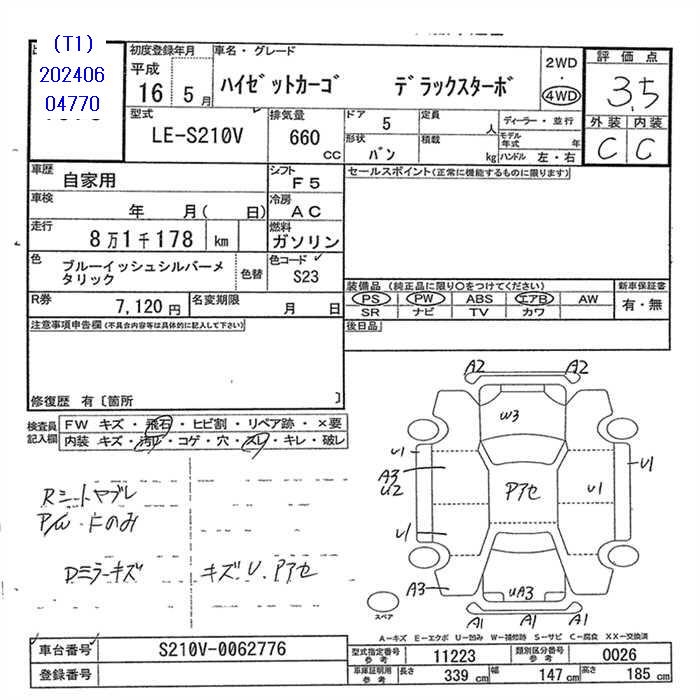 (T1)
202406
04770
初度登録年月
平成
16 5月
車名・グレード
ハイゼットカーゴ デラックスターボ
2WD
・
4WD
評価点
3.5
外装 内装
C C
型式
LE-S210V
排気量
660
CC
ドア 5
形状 バン
定員 人
積載 kg
ディーラー・並行
モデル年式 年
ハンドル 左・右
車歴 自家用
シフト F5
セールスポイント(正常に機能するものに限ります)
車検 年 月( 日)
冷房 AC
走行 8万1千178 km
燃料 ガソリン
色 ブルーイッシュシルバーメタリック
色替
色コード S23
装備品 (純正品に限り○をつけてください)
新車保証書
PS PW ABS エアB AW
有・無
SR ナビ TV カワ
R券 7,120円
名変期限 月 日
後日品
注意事項申告欄(不具合内容等は具体的に記入して下さい)
修復歴 有〔箇所 〕
検査員記入欄
FW キズ・飛石・ヒビ割・リペア跡・×要
内装 キズ・汚れ・コゲ・穴・スレ・キレ・破レ
Rシートヤブレ
P/W Fのみ
Dミラーキズ キズ.U.Pアセ
A2 A2
W3
U1
A3
U2
Pアセ
U1
U1
U1
A3
UA3
A1 A1 A1
スペア
A－キズ E－エクボ U－凹み W－補修跡 S－サビ C－腐食 XX－交換済
車台番号 S210V-0062776
登録番号
型式指定番号 参考 11223
類別区分番号 参考 0026
車庫証明用 参考 長さ 339 cm 幅 147 cm 高さ 185 cm